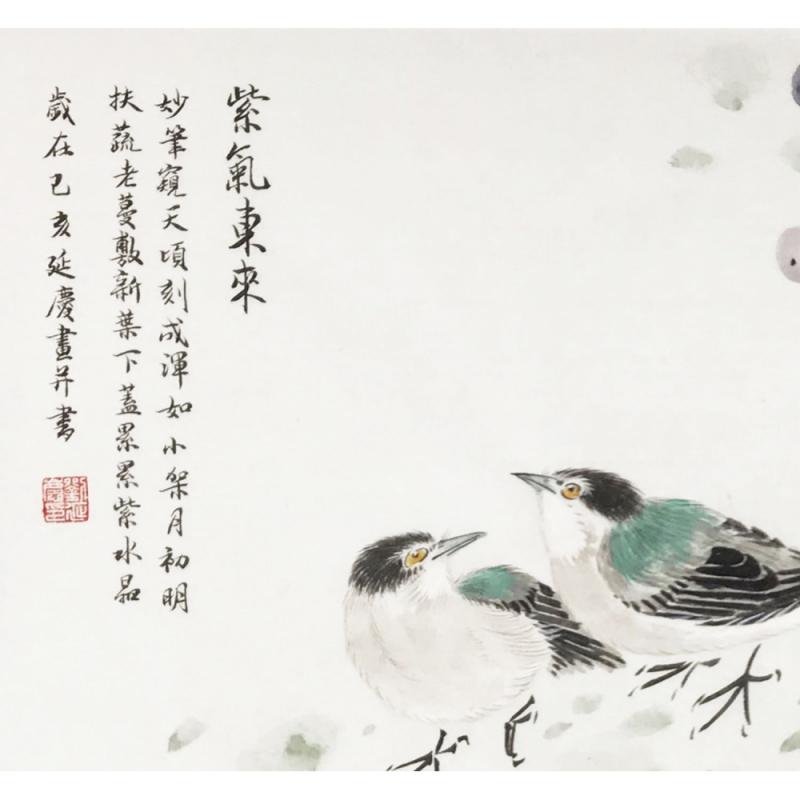 紫氣東來
妙筆窺天頃刻成渾如小架月初明
扶蔬老蔓敷新葉下蓋累累紫水晶
歲在己亥延慶畫并書
劉延慶印